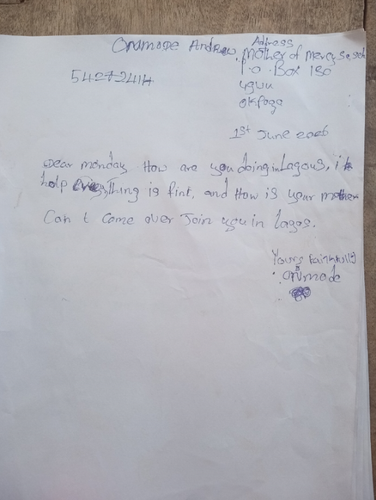 Onomose Andrew
Address
Mother of Mercy S.s sch
P.o. Box 130
ugwu
okpaga
54-27-2414
1st June 2006
Dear monday How are you doing in Lagous, i
help everything is fint, and How is your mother
Can I come over Join you in Lagos.
Yours Faithfully
onmode